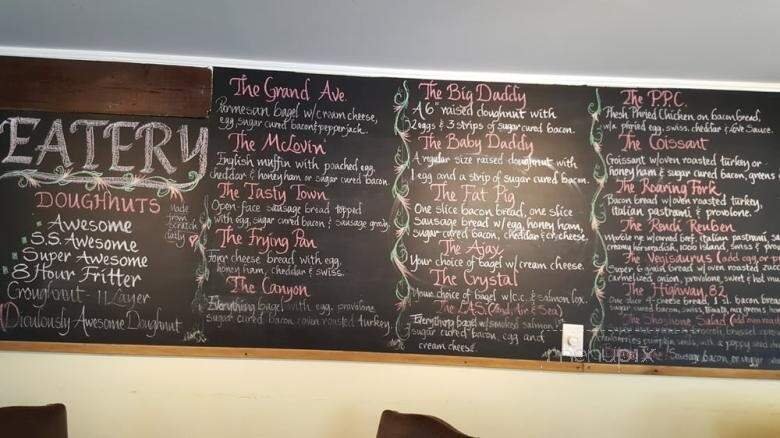 EATERY
DOUGHNUTS
Made
from
scratch
daily
Awesome
S.S. Awesome
Super Awesome
8 Hour Fritter
Croughnut - 11 Layer
Diculously Awesome Doughnut
The Grand Ave.
Parmesan bagel w/cream cheese,
egg, sugar cured bacon & pepperjack.
The McLovin'
English muffin with poached egg,
cheddar & honey ham or sugar cured bacon.
The Tasty Town
Open face sausage bread topped
with egg, sugar cured bacon & sausage gravy.
The Frying Pan
Four cheese bread with egg,
honey ham, cheddar & swiss.
The Canyon
Everything bagel with egg, provolone
sugar cured bacon, oven roasted turkey.
The Big Daddy
A 6" raised doughnut with
2 eggs & 3 strips of sugar cured bacon.
The Baby Daddy
A regular size raised doughnut with
1 egg and a strip of sugar cured bacon.
The Fat Pig
One slice bacon bread, one slice
sausage bread w/egg, honey ham,
sugar cured bacon, cheddar & cr. cheese.
The Ajax
Your choice of bagel w/cream cheese.
The Crystal
Your choice of bagel w/c.c. & salmon lox.
The L.A.S. (Land Air & Sea)
Everything bagel w/smoked salmon,
sugar cured bacon, egg and
cream cheese.
The P.P.C.
Phesh Phried Chicken on bacon bread,
w/a phried egg, swiss, cheddar & Love Sauce.
The Coissant
Croissant w/oven roasted turkey or
honey ham & sugar cured bacon, greens
The Roaring Fork
Bacon bread w/oven roasted turkey,
italian pastrami & provolone.
The Randi Reuben
Marble rye w/corned beef, italian pastrami, sa
creamy horseradish, 1000 island, swiss &
The Vegisaurus (add egg or
Super 6 grain bread w/oven roasted
carmelized onion, provolone, sweet & hot
The Highway 82
One slice 4-cheese bread, 1 sl. bacon
sugar cured bacon, swiss, tomato,
Salad
Sausage, bacon or veggie
menupix